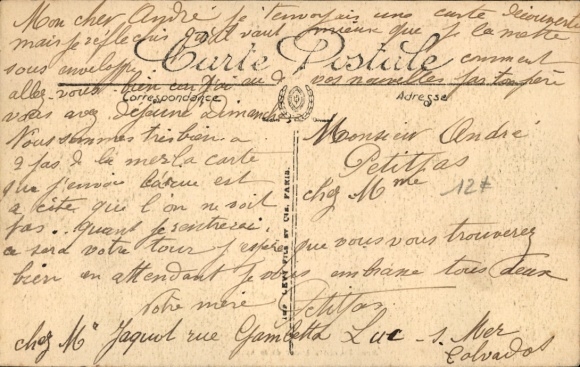 Mon cher André je t'envoyais une carte découverte
mais je réfléchis qu'il vaut mieux que je la mette
sous enveloppe comment
Carte Postale
allez-vous bien car j'ai eu de vos nouvelles
Correspondance
Adresse
vous avez Dimanche
Nous sommes tres bien a
2 pas de la mer la carte
que j'envoie est
a côté que l'on ne voit
pas.. quand je rentrerai
ce sera votre tour j'espère que vous vous trouverez
bien en attendant je vous embrasse tous deux
Votre mère Petitjas
Monsieur André
Petitjas
chez Mme
12#
IMP. LEVY FILS ET CIE. PARIS.
chez Mr Jaquot rue Gambetta Luc-s. Mer
Calvados